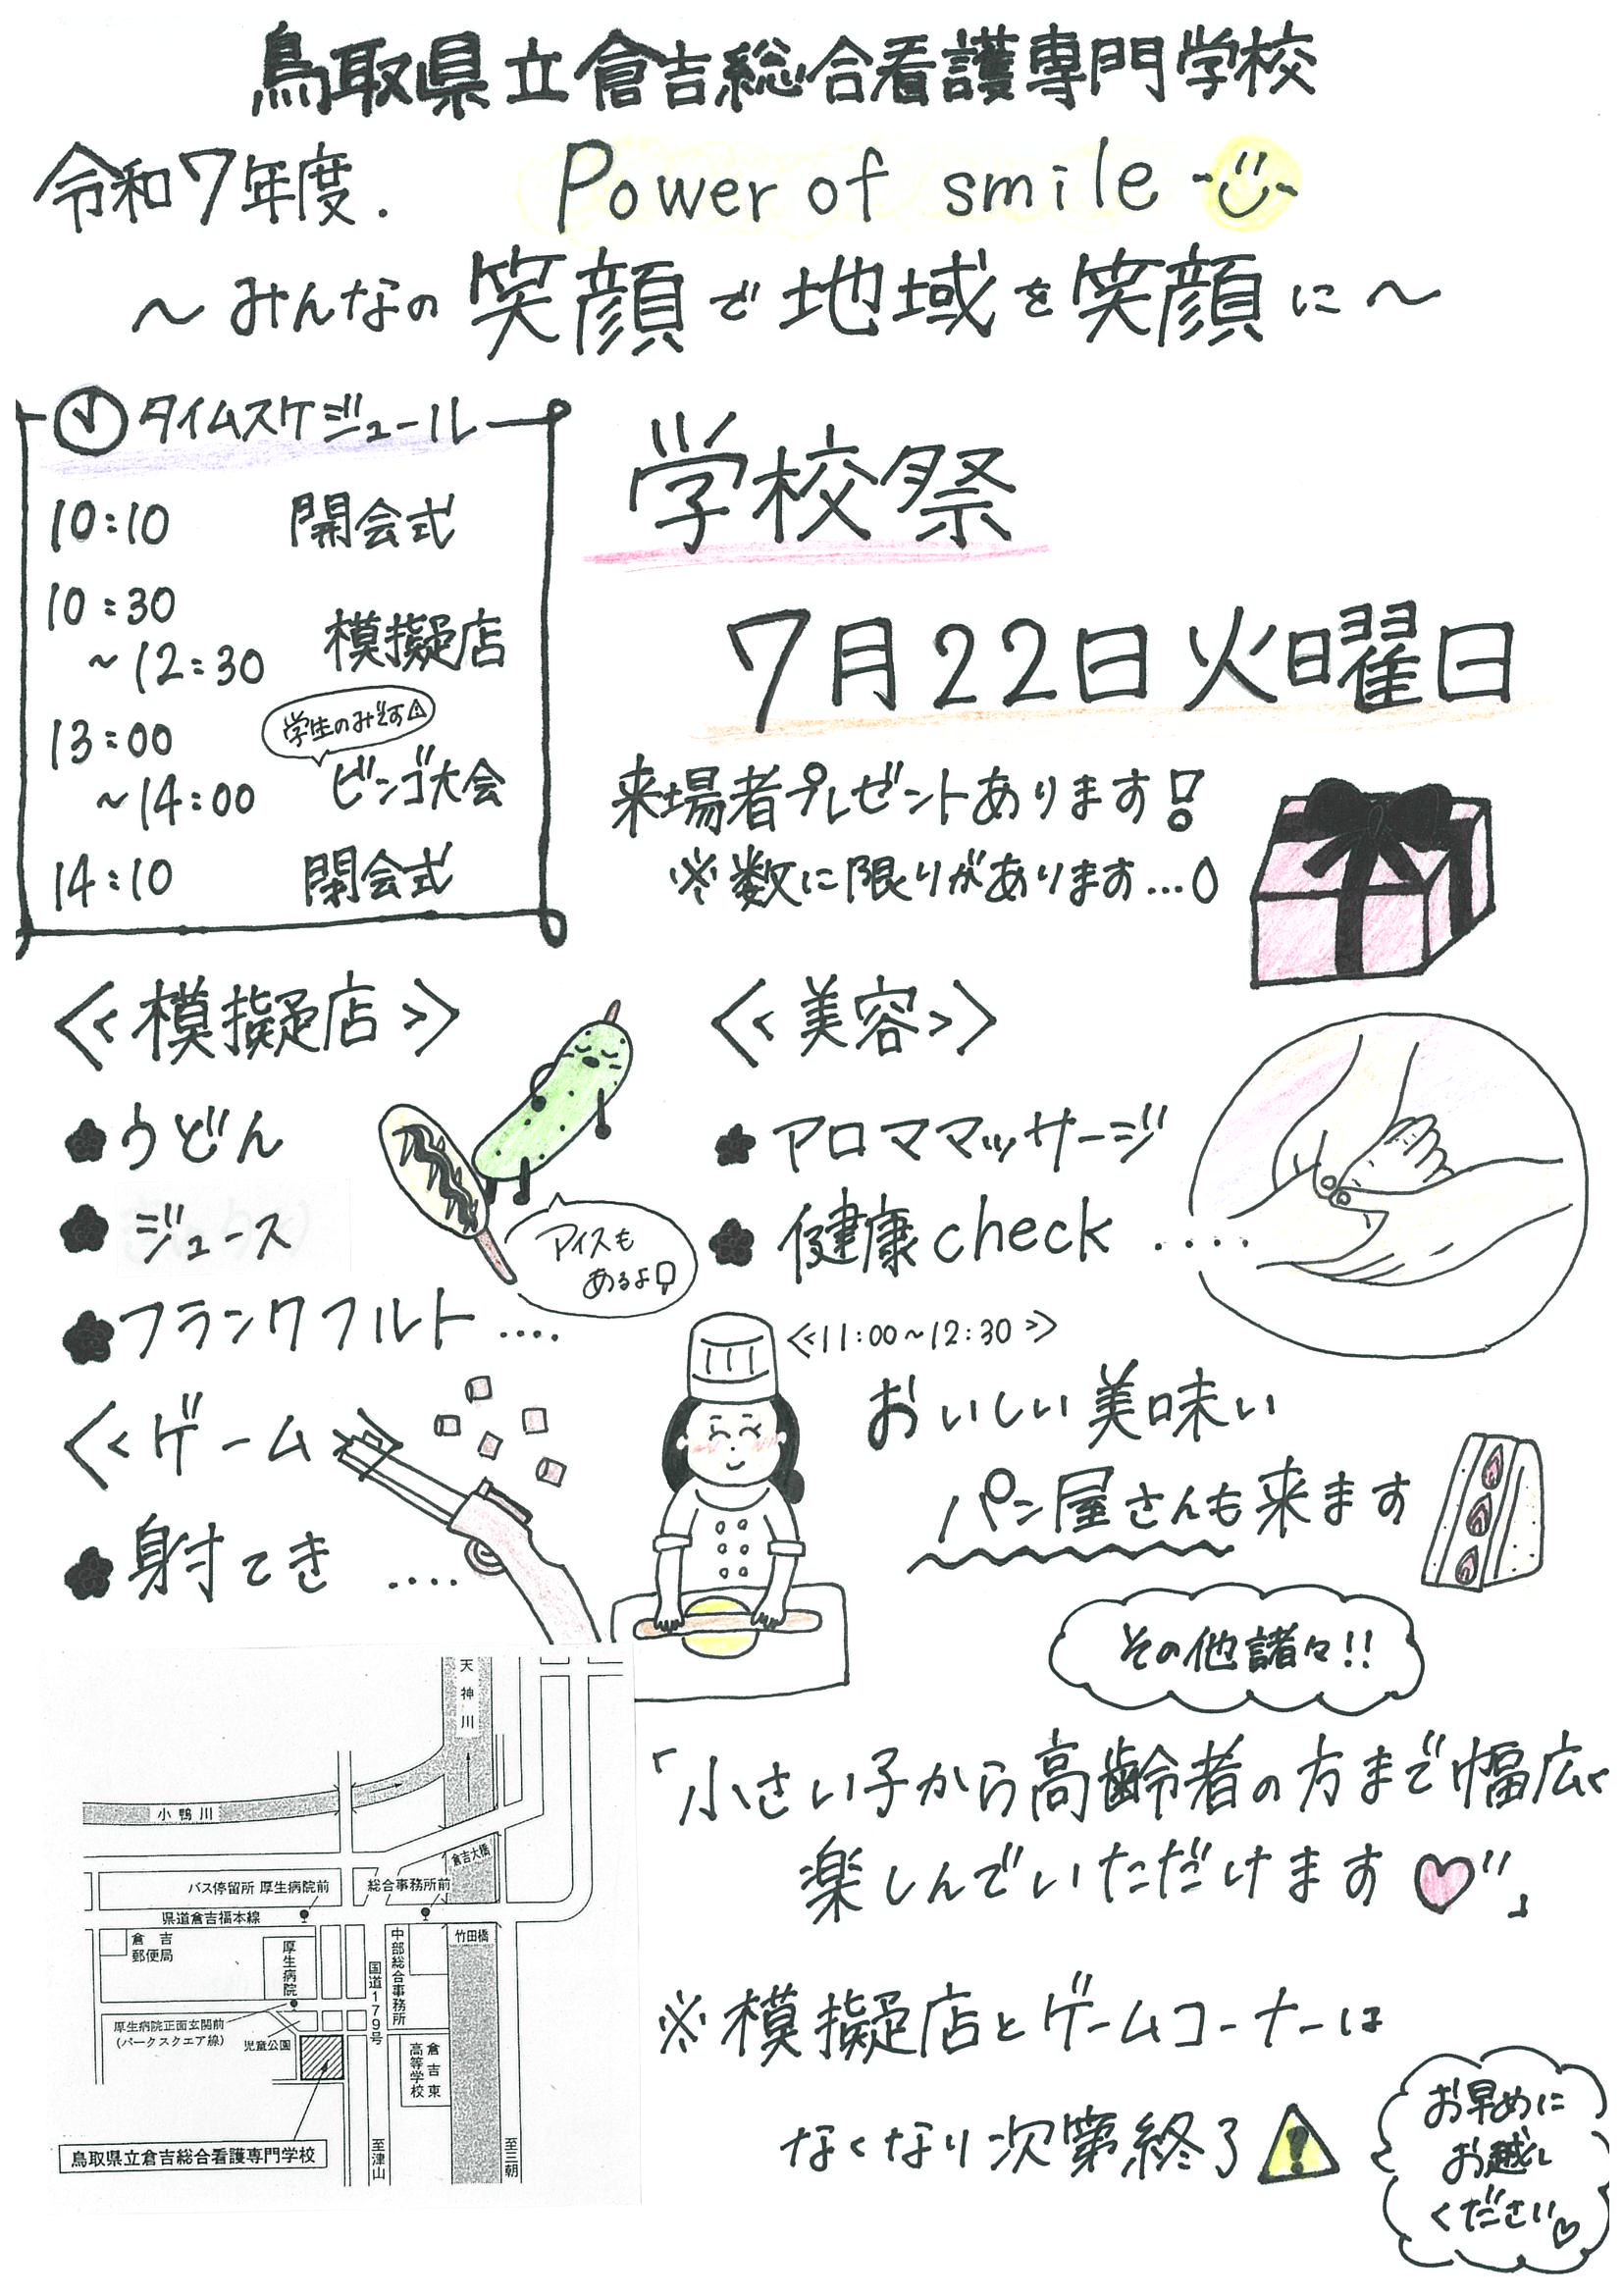 鳥取県立倉吉総合看護専門学校
令和7年度. Power of smile
～みんなの笑顔で地域を笑顔に～
タイムスケジュール
10:10 開会式
10:30
～12:30 模擬店
13:00 学生のみです
～14:00 ビンゴ大会
14:10 閉会式
学校祭
7月22日火曜日
来場者プレゼントあります!
※数に限りがあります...
<<模擬店>>
うどん
ジュース
フランクフルト....
アイスも
あるよ!
<<美容>>
アロママッサージ
健康check ....
<<ゲーム>>
射てき ....
<<11:00~12:30>>
おいしい美味い
パン屋さんも来ます
その他諸々!!
「小さい子から高齢者の方まで幅広く
楽しんでいただけます♡"」
※模擬店とゲームコーナーは
なくなり次第終了
お早めに
お越し
ください♡
天神川
小鴨川
倉吉大橋
バス停留所 厚生病院前
総合事務所前
県道倉吉福本線
倉吉
郵便局
厚生病院
国道179号
中部総合事務所
竹田橋
厚生病院正面玄関前
(パークスクエア線)
児童公園
倉吉東
高等学校
鳥取県立倉吉総合看護専門学校
至津山
至三朝